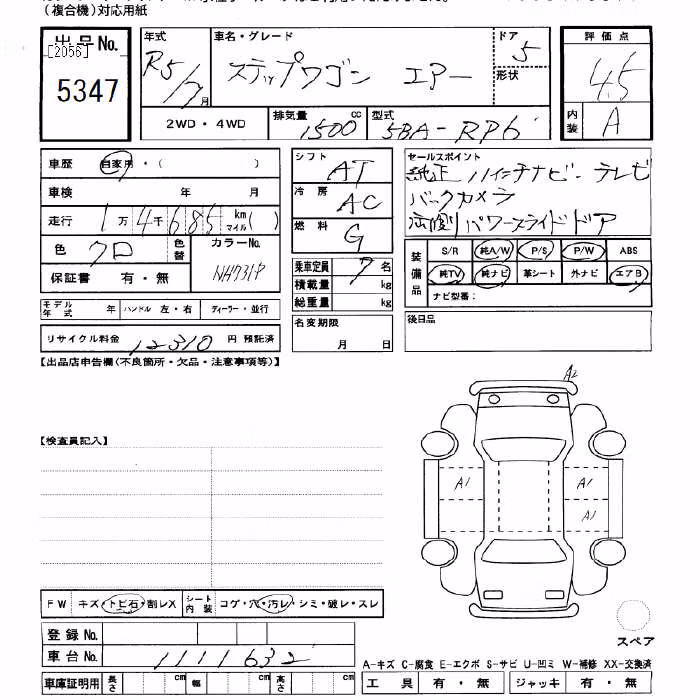 (複合機)対応用紙
出品No.
[2056]
5347
年式
R5/7月
車名・グレード
ステップワゴン エアー
ドア
5
形状
評価点
4.5
内装
A
2WD・4WD
排気量
1500 cc
型式
5BA-RP6
車歴 自家用・( )
車検 年 月
走行 1万4千685 km マイル( )
色 クロ 色替
カラーNo.
NH731P
保証書 有・無
シフト AT
冷房 AC
燃料 G
乗車定員 7名
積載量 kg
総重量 kg
セールスポイント
純正 ハイエナビ テレビ
バックカメラ
両側パワースライドドア
装備品
S/R 純A/W P/S P/W ABS
純TV 純ナビ 革シート 外ナビ エアB
ナビ型番:
モデル年式 年 ハンドル 左・右 ディーラー・並行
名変期限
月 日
後日品
リサイクル料金 12310 円 預託済
【出品店申告欄(不良箇所・欠品・注意事項等)】
【検査員記入】
A2
A1 A1
A1
FW キズ・トビ石・割レX シート内装 コゲ・穴・汚レ・シミ・破レ・スレ
登録No.
車台No. 1111632
スペア
A-キズ C-腐食 E-エクボ S-サビ U-凹ミ W-補修 XX-交換済
車庫証明用 長さ cm 幅 cm 高さ cm
工具 有・無 ジャッキ 有・無